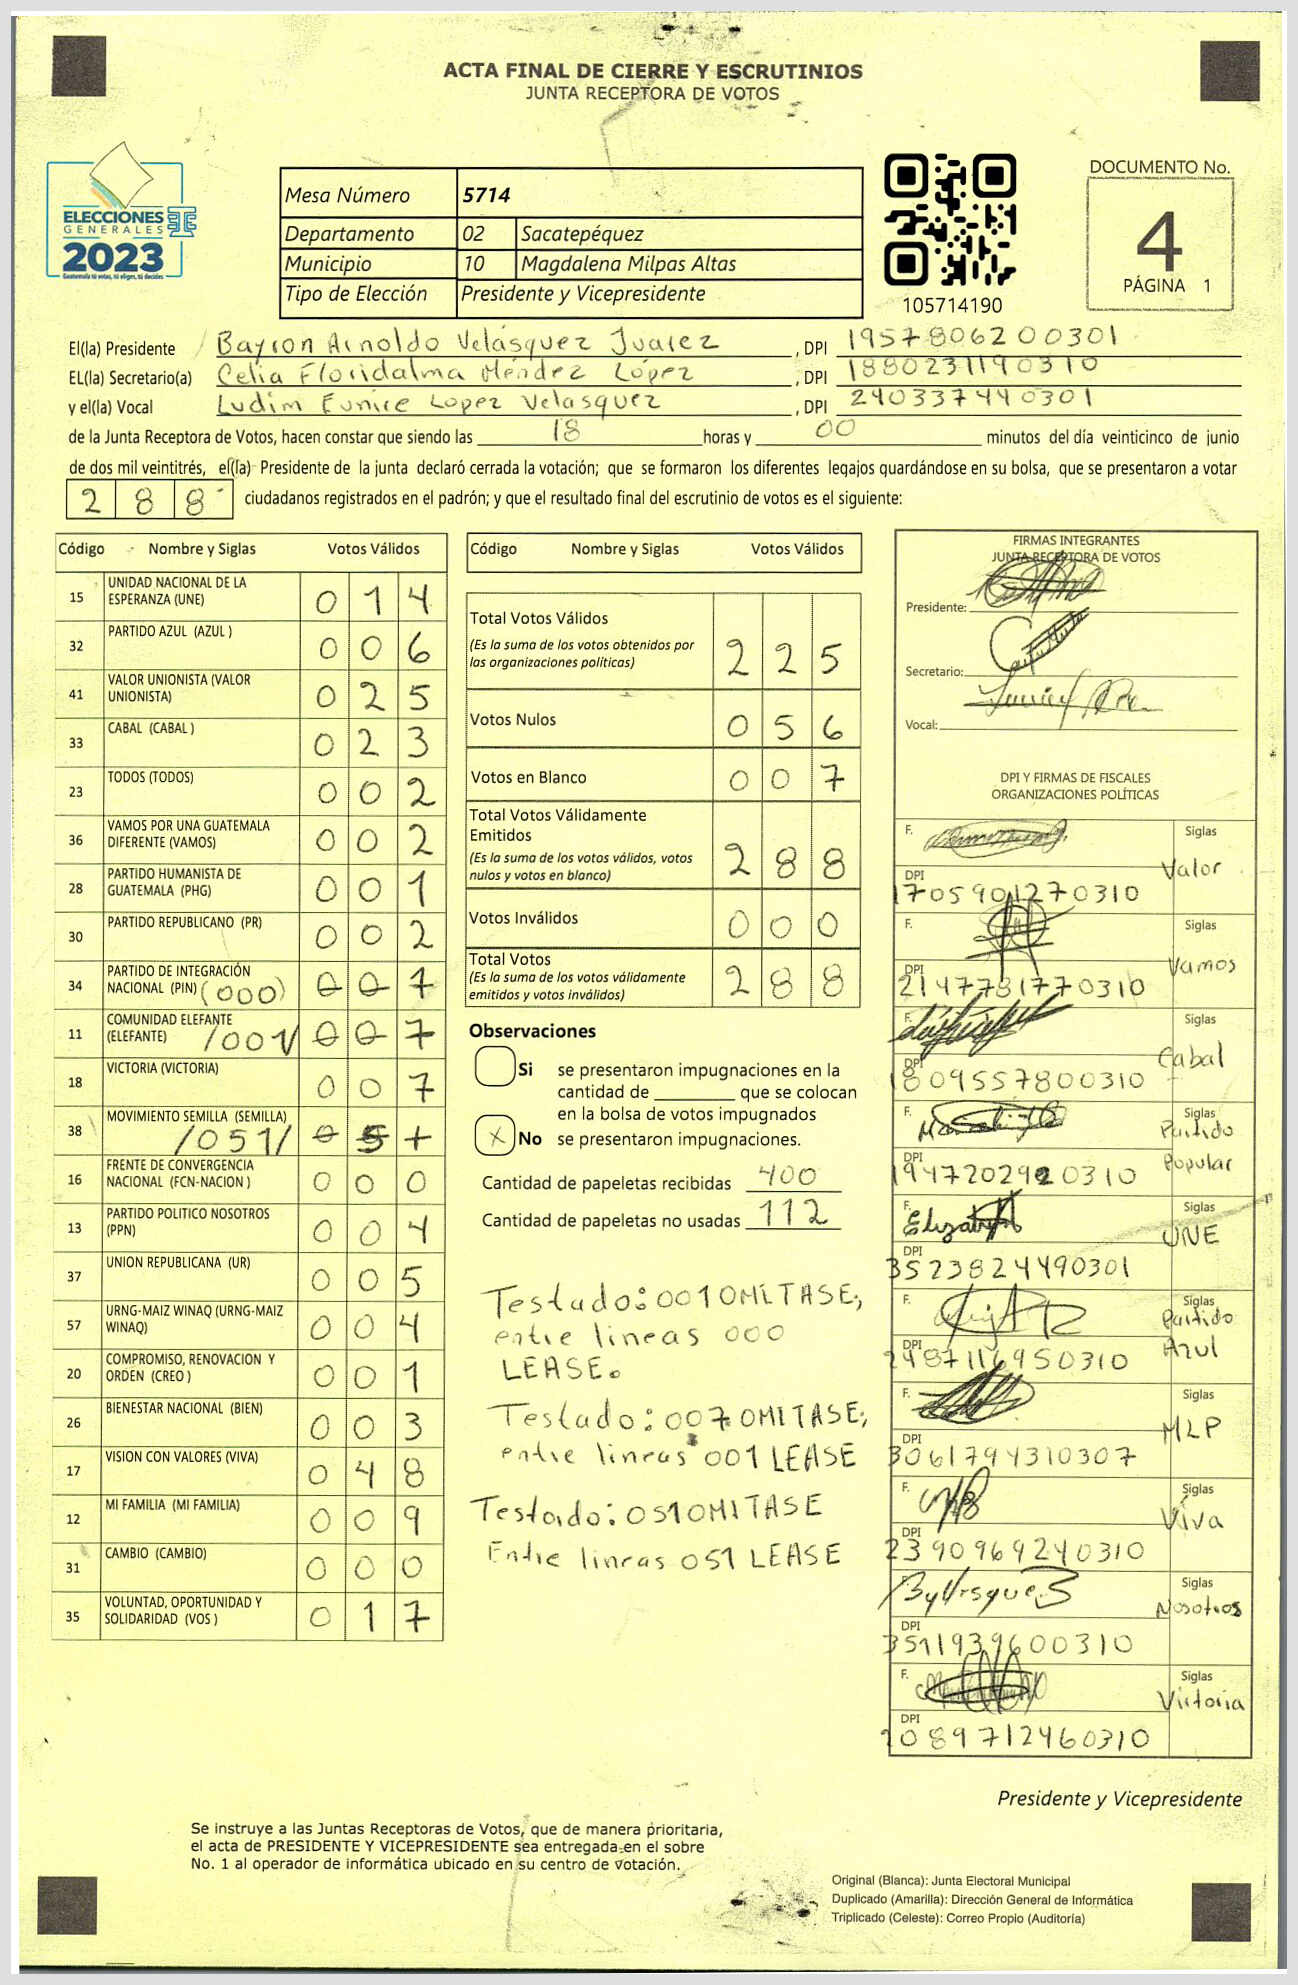 ACTA FINAL DE CIERRE Y ESCRUTINIOS
JUNTA RECEPTORA DE VOTOS
ELECCIONES
GENERALES
2023
Guatemala tú votas, tú eliges, tú decides
Mesa Número 5714
Departamento 02 Sacatepéquez
Municipio 10 Magdalena Milpas Altas
Tipo de Elección Presidente y Vicepresidente
105714190
DOCUMENTO No.
4
PÁGINA 1
El(la) Presidente Bayron Arnoldo Velásquez Juarez, DPI 1957806200301
EL(la) Secretario(a) Celia Floridalma Méndez López, DPI 1880231190310
y el(la) Vocal Ludim Eunice Lopez Velasquez, DPI 240337440301
de la Junta Receptora de Votos, hacen constar que siendo las 18 horas y 00 minutos del día veinticinco de junio
de dos mil veintitrés, el(la) Presidente de la junta declaró cerrada la votación; que se formaron los diferentes legajos guardándose en su bolsa, que se presentaron a votar
288 ciudadanos registrados en el padrón; y que el resultado final del escrutinio de votos es el siguiente:
Código Nombre y Siglas Votos Válidos
15 UNIDAD NACIONAL DE LA ESPERANZA (UNE) 0 1 4
32 PARTIDO AZUL (AZUL ) 0 0 6
41 VALOR UNIONISTA (VALOR UNIONISTA) 0 2 5
33 CABAL (CABAL ) 0 2 3
23 TODOS (TODOS) 0 0 2
36 VAMOS POR UNA GUATEMALA DIFERENTE (VAMOS) 0 0 2
28 PARTIDO HUMANISTA DE GUATEMALA (PHG) 0 0 1
30 PARTIDO REPUBLICANO (PR) 0 0 2
34 PARTIDO DE INTEGRACIÓN NACIONAL (PIN) (000) 0 0 1
11 COMUNIDAD ELEFANTE (ELEFANTE) /001/ 0 0 7
18 VICTORIA (VICTORIA) 0 0 7
38 MOVIMIENTO SEMILLA (SEMILLA) /051/ 0 5 1
16 FRENTE DE CONVERGENCIA NACIONAL (FCN-NACION ) 0 0 0
13 PARTIDO POLITICO NOSOTROS (PPN) 0 0 4
37 UNION REPUBLICANA (UR) 0 0 5
57 URNG-MAIZ WINAQ (URNG-MAIZ WINAQ) 0 0 4
20 COMPROMISO, RENOVACION Y ORDEN (CREO ) 0 0 1
26 BIENESTAR NACIONAL (BIEN) 0 0 3
17 VISION CON VALORES (VIVA) 0 4 8
12 MI FAMILIA (MI FAMILIA) 0 0 9
31 CAMBIO (CAMBIO) 0 0 0
35 VOLUNTAD, OPORTUNIDAD Y SOLIDARIDAD (VOS ) 0 1 7
Código Nombre y Siglas Votos Válidos
Total Votos Válidos 2 2 5
(Es la suma de los votos obtenidos por
las organizaciones políticas)
Votos Nulos 0 5 6
Votos en Blanco 0 0 7
Total Votos Válidamente
Emitidos 2 8 8
(Es la suma de los votos válidos, votos
nulos y votos en blanco)
Votos Inválidos 0 0 0
Total Votos 2 8 8
(Es la suma de los votos válidamente
emitidos y votos inválidos)
Observaciones
Si se presentaron impugnaciones en la
cantidad de ________ que se colocan
en la bolsa de votos impugnados
X No se presentaron impugnaciones.
Cantidad de papeletas recibidas 400
Cantidad de papeletas no usadas 112
Testado: 001 OMITASE,
entre lineas 000
LEASE.
Testado: 007 OMITASE,
entre lineas 001 LEASE
Testado: 051 OMITASE
Entre lineas 051 LEASE
FIRMAS INTEGRANTES
JUNTA RECEPTORA DE VOTOS
Presidente:
Secretario:
Vocal:
DPI Y FIRMAS DE FISCALES
ORGANIZACIONES POLÍTICAS
F. Siglas Valor
DPI 1705901270310
F. Siglas Vamos
DPI 2147781770310
F. Siglas Cabal
DPI 1809557800310
F. Siglas Partido Popular
DPI 1947202920310
F. Elizabeth Siglas UNE
DPI 3523824490301
F. Siglas Partido Azul
DPI 2487116950310
F. Siglas MLP
DPI 3061794310307
F. Siglas Viva
DPI 2390969240310
F. Siglas Nosotros
DPI 3511939600310
F. Siglas Victoria
DPI 2089712460310
Presidente y Vicepresidente
Se instruye a las Juntas Receptoras de Votos, que de manera prioritaria,
el acta de PRESIDENTE Y VICEPRESIDENTE sea entregada en el sobre
No. 1 al operador de informática ubicado en su centro de votación.
Original (Blanca): Junta Electoral Municipal
Duplicado (Amarilla): Dirección General de Informática
Triplicado (Celeste): Correo Propio (Auditoría)